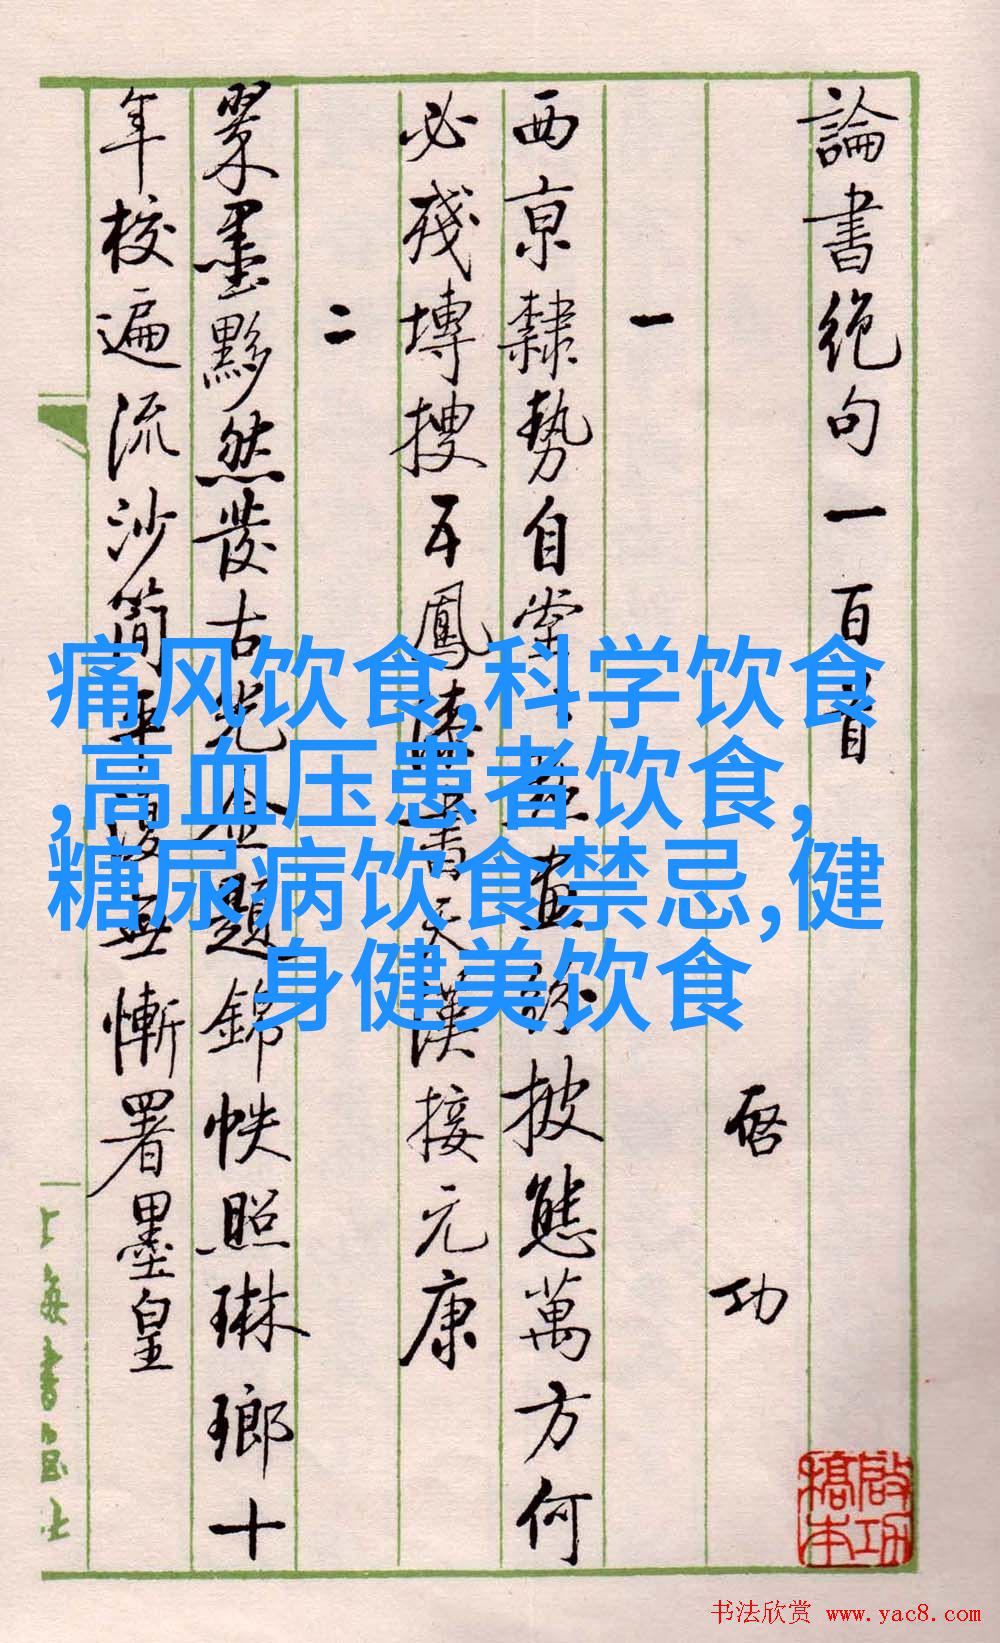 論書絕句一百首
啓功
一
西京隸勢自堂々點畫紛披態萬方何
必殘塼搜五鳳漆書天漢接元康
二
翠墨黟然發古光金題錦帙照琳瑯十
年校遍流沙簡平復無慚署墨皇
痛风饮食,科学饮食
,高血压患者饮食,
糖尿病饮食禁忌,健
身健美饮食
啟功
稿本
书法欣赏 www.yac8.com